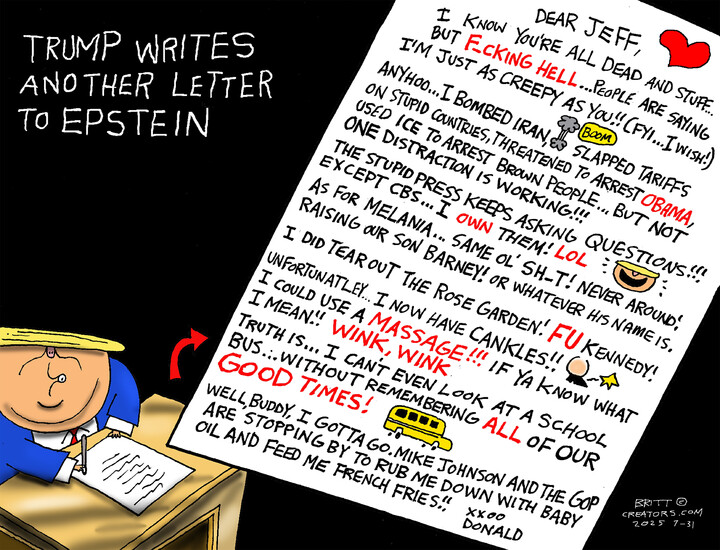 TRUMP WRITES
ANOTHER LETTER
TO EPSTEIN
DEAR JEFF,
I KNOW YOU'RE ALL DEAD AND STUFF...
BUT F-CKING HELL...PEOPLE ARE SAYING
I'M JUST AS CREEPY AS YOU!! (FYI...I WISH!)
ANYHOO...I BOMBED IRAN, BOOM SLAPPED TARIFFS
ON STUPID COUNTRIES, THREATENED TO ARREST OBAMA,
USED ICE TO ARREST BROWN PEOPLE... BUT NOT
ONE DISTRACTION IS WORKING!!!
THE STUPID PRESS KEEPS ASKING QUESTIONS!!!
EXCEPT CBS...I OWN THEM! LOL
AS FOR MELANIA... SAME OL' SH-T! NEVER AROUND!
RAISING OUR SON BARNEY! OR WHATEVER HIS NAME IS.
I DID TEAR OUT THE ROSE GARDEN! FU KENNEDY!
UNFORTUNATLEY... I NOW HAVE CANKLES!!
I COULD USE A MASSAGE!!! IF YA KNOW WHAT
I MEAN!! WINK, WINK
TRUTH IS... I CAN'T EVEN LOOK AT A SCHOOL
BUS...WITHOUT REMEMBERING ALL OF OUR
GOOD TIMES!
WELL, BUDDY, I GOTTA GO, MIKE JOHNSON AND THE GOP
ARE STOPPING BY TO RUB ME DOWN WITH BABY
OIL AND FEED ME FRENCH FRIES!!
XXOO
DONALD
BRITT ©
CREATORS.COM
2025 7-31